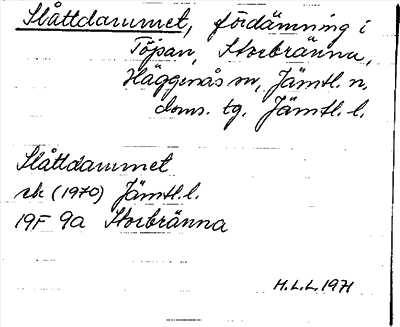 Slåttdammet, fördämning i
Töjsan, Storbränna,
Häggenås sn, Jämtl. n.
doms. tg. Jämtl. l.
Slåttdammet
ek (1970) Jämtl. l.
19F 9a Storbränna
H.L.L. 1971